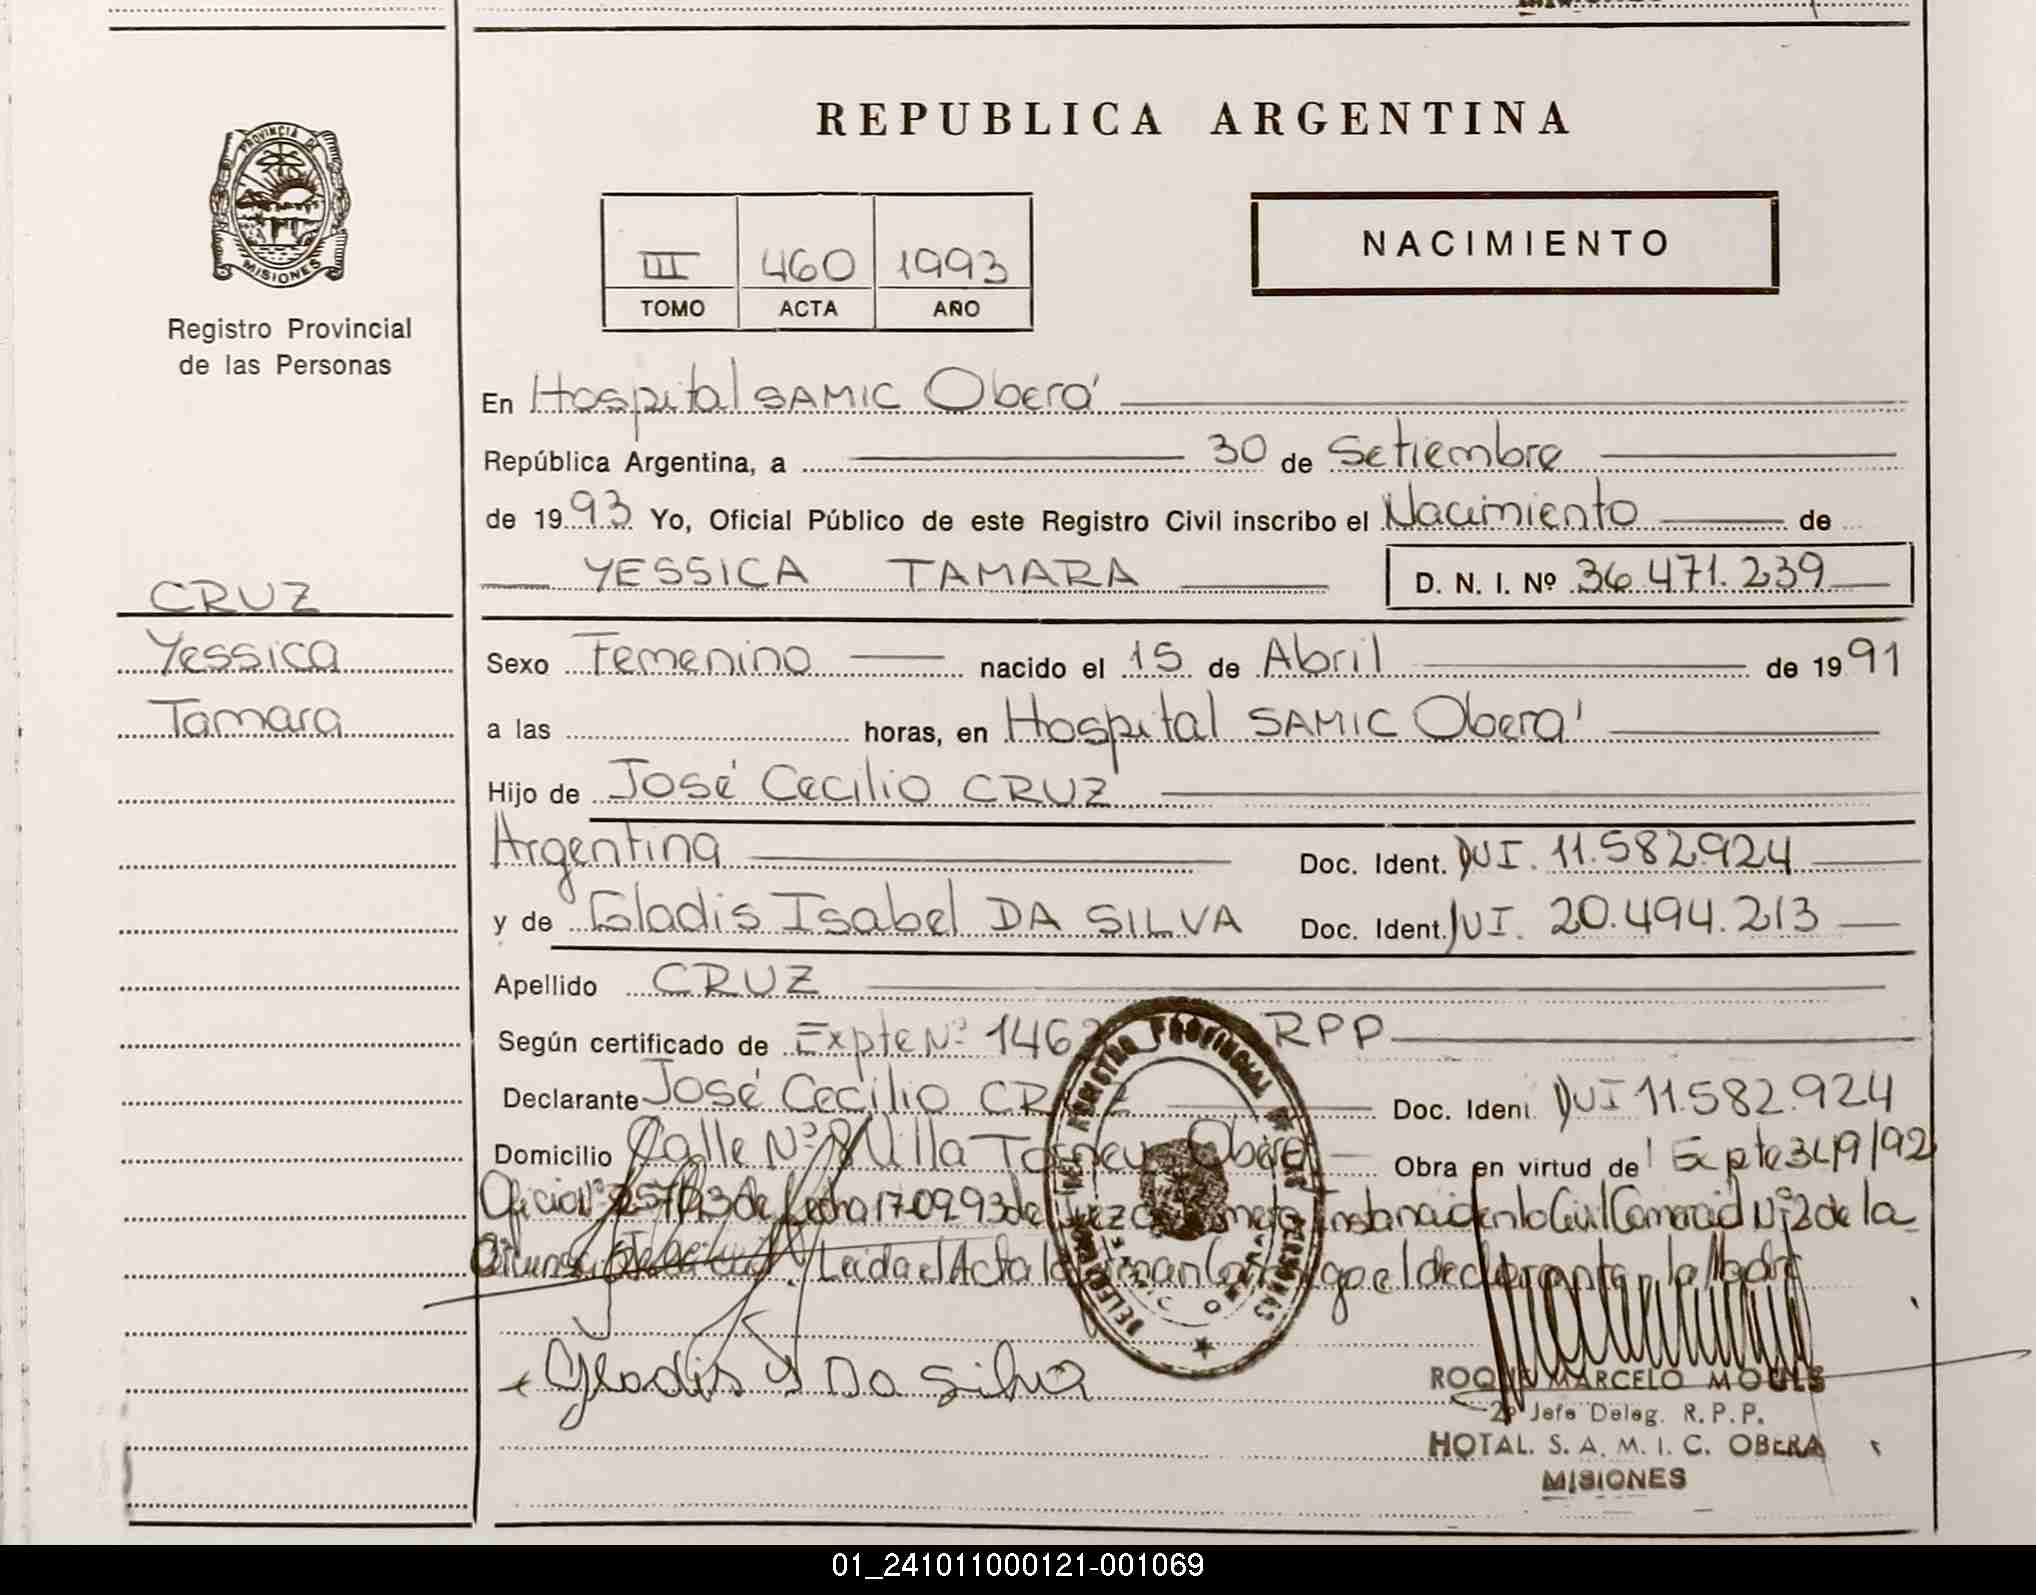 REPUBLICA ARGENTINA
PROVINCIA DE
MISIONES
Registro Provincial
de las Personas
III 460 1993
TOMO ACTA AÑO
NACIMIENTO
En Hospital SAMIC Oberá
República Argentina, a 30 de Setiembre
de 1993 Yo, Oficial Público de este Registro Civil inscribo el Nacimiento de
YESSICA TAMARA D. N. I. Nº 36.471.239
CRUZ
Yessica
Tamara
Sexo Femenino nacido el 15 de Abril de 1991
a las horas, en Hospital SAMIC Oberá
Hijo de José Cecilio CRUZ
Argentina Doc. Ident. DNI. 11.582.924
y de Gladis Isabel DA SILVA Doc. Ident. DNI. 20.494.213
Apellido CRUZ
Según certificado de Expte Nº 146 RPP
Declarante José Cecilio CRUZ Doc. Ident. DNI 11.582.924
Domicilio Calle Nº 8 Villa Oberá Obra en virtud de Expte 349/92
Oficio Nº de fecha 17-02-93 de Juez de Primera Instancia en lo Civil Comercial Nº 2 de la
Leida el Acta la firman Conmigo el declarante y la Madre
Gladis Y Da Silva
REGISTRO PROVINCIAL DE LAS PERSONAS
ROQUE MARCELO MOULS
2º Jefe Deleg. R. P. P.
HOTAL. S. A. M. I. C. OBERA
MISIONES
01_241011000121-001069